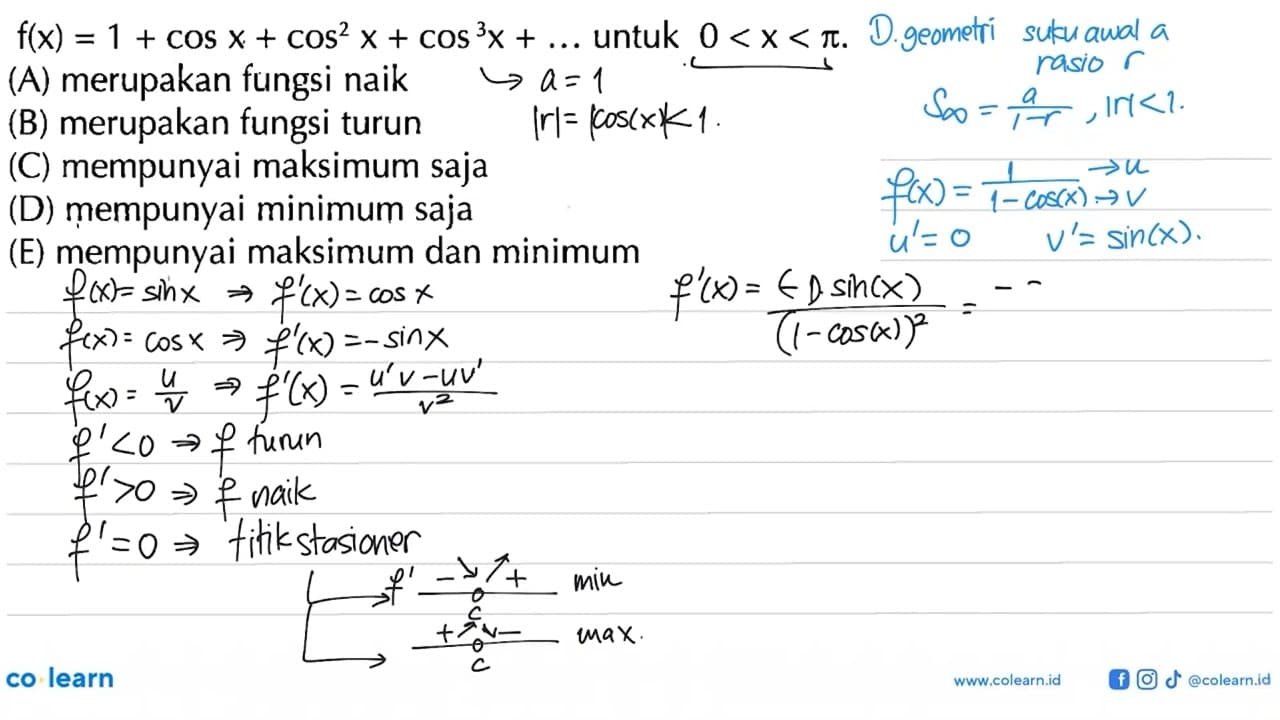 f(x) = 1 + cos x + cos² x + cos ³x + ... untuk 0 < x < π.
(A) merupakan fungsi naik
(B) merupakan fungsi turun
(C) mempunyai maksimum saja
(D) mempunyai minimum saja
(E) mempunyai maksimum dan minimum
↳ a = 1
|r| = |cos(x)| < 1.
D. geometri suku awal a
rasio r
S∞ = a/(1-r), |r| < 1.
f(x) = 1/(1 - cos(x)) → u → v
u' = 0 v' = sin(x).
f(x) = sin x ⇒ f'(x) = cos x
f(x) = cos x ⇒ f'(x) = - sin x
f(x) = u/v ⇒ f'(x) = (u'v - uv')/v²
f' < 0 ⇒ f turun
f' > 0 ⇒ f naik
f' = 0 ⇒ titik stasioner
f' - ↘ ↗ + min
c
+ ↗ ↘ - max.
c
f'(x) = (-1) sin(x)/(1 - cos(x))² = - -
co learn
www.colearn.id @colearn.id